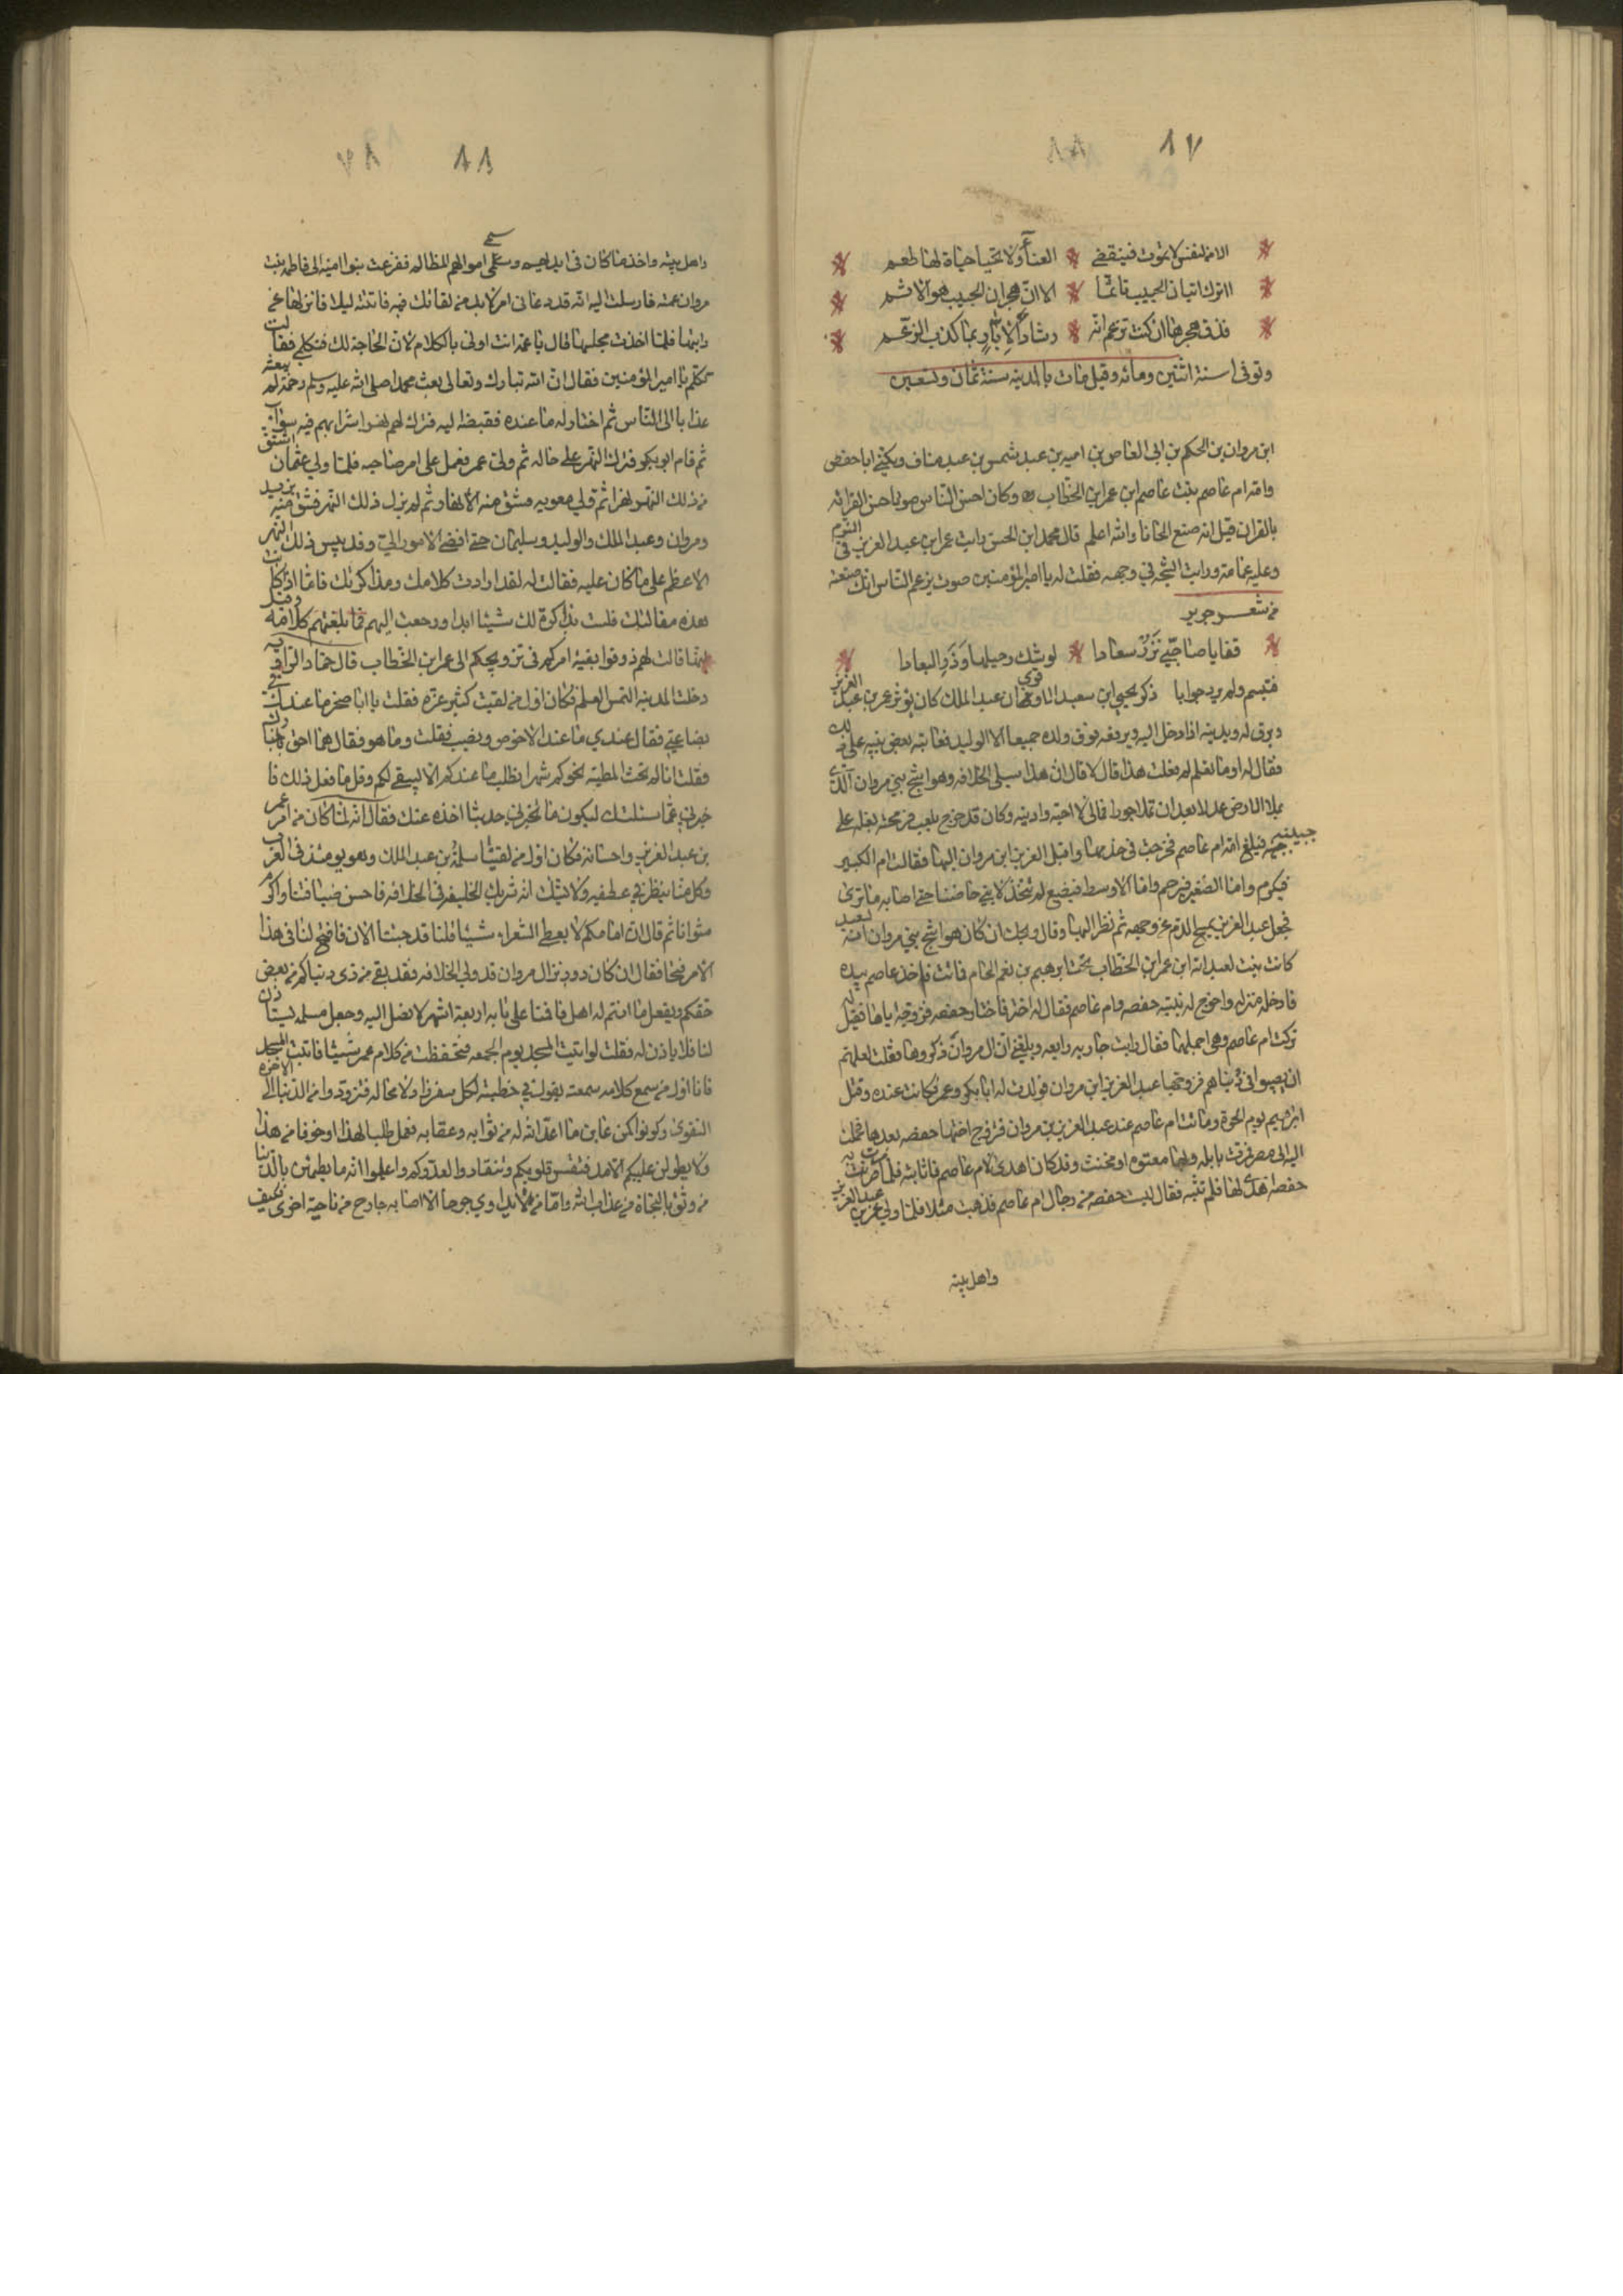 ٨٧
الا من لنفس لا تموت فينقضي العنا ولا تحيا حياة لها طعم
اترك اتيان الحبيب تاثما الا ان هجران الحبيب هو الاثم
فذق هجرها ان كنت تزعم انه رشاد الا يا ربما كذب الزعم
وتوفي سنة اثنين ومائه وقيل مات بالمدينه سنة ثمان وتسعين
ابن مروان بن الحكم بن ابي العاص بن اميه بن عبد شمس بن عبد مناف ويكنى ابا حفص
وامه ام عاصم بنت عاصم ابن عمر ابن الخطاب وكان احسن الناس صوتا حسن القرائه
بالقران قيل انه صنع الحانا والله اعلم قال محمد ابن الحسن رايت عمر ابن عبد العزيز في النوم
وعليه عمامة ورايت الشجه في وجهه فقلت له يا امير المؤمنين صوت يزعم الناس انك صنعته
من شعر جرير
قفا يا صاحبي نزر سعادا لوشك رحيلها وذر البعادا
فتبسم ولم يرد جوابا ذكر يحيى ابن سعيد الاموي ان عبد الملك كان يؤثر عمر بن عبد العزيز
ويرق له ويدنيه اذا دخل اليه ويرفعه فوق ولده جميعا الا الوليد فعاتبه بعض بنيه على ذلك
فقال له اوما تعلم لم فعلت هذا قال لا قال ان هذا سيلي الخلافه وهو اشج بني مروان الذي
يملا الارض عدلا بعد ان تملا جورا فمالي لا احبه وادنيه وكان قد خرج يلعب فرمحته بغله على
جبينه فبلغ امه ام عاصم فخرجت في خدمها واقبل العزيز ابن مروان اليها فقالت ام الكبير
فيكرم واما الصغير فيرحم واما الاوسط فيضيع لم تتخذ لابني حاضنا حتى اصابه ما ترى
فجعل عبد العزيز يمسح الدم عن وجهه ثم نظر اليها وقال ويحك ان كان هو اشج بني مروان انه لسعيد
كانت بنت لعبد الله ابن عمر ابن الخطاب تحت ابرهيم بن نعيم الحام فماتت فاخذ عاصم بيده
فادخله منزله واخرج له بنتيه حفصه وام عاصم فقال له اختر فاختار حفصه فزوجه اياها فقيل له
تركت ام عاصم وهي اجملهما فقال رايت جاريه رايعه وبلغني ان ال مروان ذكروها فقلت لعلهم
ان يصيبوا في دنياهم فزوجها عبد العزيز ابن مروان فولدت له ابا بكر وعمر فكانت عنده وقتل
ابراهيم يوم الحرة وماتت ام عاصم عند عبد العزيز بن مروان فتزوج اختها حفصه بعدها فحملت
اليه الى مصر فمرت بايله وبها معتوه او مخنث وقد كان اهدى لام عاصم فاثابته فلما مرت به
حفصه اهدى لها فلم تثبه فقال ليست حفصه من رجال ام عاصم فذهبت مثلا فلما ولي عمر بن عبد العزيز
واهل بيته
٨٨
واهل بيته واخذ ما كان في ايديهم وسمى اموالهم المظالم ففزعت بنوا اميه الى فاطمه بنت
مروان عمته فارسلت اليه انه قد دعاني امر لابد من لقائك فيه فاتته ليلا فانزلها عن
دابتها فلما اخذت مجلسها قال يا عمه انت اولى بالكلام لان الحاجة لك فتكلمي فقالت
تكلم يا امير المؤمنين فقال ان الله تبارك وتعالى بعث محمدا صلى الله عليه وسلم رحمة لم يبعثه
عذابا الى الناس ثم اختار له ما عنده فقبضه اليه فترك لهم نهرا شرابهم فيه سواء
ثم قام ابو بكر فترك النهر على حاله ثم ولي عمر فعمل على امر صاحبه فلما ولي عثمان اشتق
من ذلك النهر نهرا ثم ولي معويه فشق منه الانهار ثم لم يزل ذلك النهر فشق منه يزيد
ومروان وعبد الملك والوليد وسليمان حتى افضى الامر الي وقد يبس ذلك النهر
الاعظم على ما كان عليه فقالت له لقد اردت كلامك ومذاكرتك فاما اذ كانت
هذه مقالتك فلست بذاكرة لك شيئا ابدا ورجعت اليهم فابلغتهم كلامه وقيل
انها قالت لهم ذوقوا بقية امركم في تزويجكم الى عمر ابن الخطاب قال حماد الراويه
دخلت المدينه التمس العلم فكان اول من لقيت كثير عزه فقلت يا ابا صخر ما عندك من
بضاعتي فقال عندي ما عند الاحوص ونصيب فقلت وما هو فقال هما احق باخبارك
فقلت انا لم نحث المطيه نحوكم شهرا نطلب ما عندكم الا ليبقى لكم وقل ما فعل ذلك فا
خبرني عما سئلتك ليكون ما تخبرني حديثا اخذه عنك فقال انه لما كان من امر عمر
بن عبد العزيز واحسانه فكان اول من لقيتنا مسلمة بن عبد الملك وهو يومئذ فتى العرب
وكل منا ينظر في عطفيه ولا يشك انه شريك الخليفه في الخلافه فاحسن ضيافتنا واكرم
مثوانا ثم قال ان امامكم لا يعطي الشعراء شيئا قلنا قد جئنا الان فافتح لنا في هذا
الامر فتحا فقال ان كان ذو دين ال مروان قد ولي الخلافه فقد بقي من ذي دنياكم من يعض
حقكم ويفعل ما انتم له اهل فاقمنا على بابه اربعة اشهر لا نصل اليه وجعل مسلمه يستاذن
لنا فلا ياذن له فقلت لو اتيت المسجد يوم الجمعه فتحفظت من كلام عمر شيئا فاتيت المسجد
فانا اول من سمع كلامه سمعته يقول في خطبته لكل سفر زاد لا محاله فتزودوا من الدنيا الى الاخره
التقوى وكونوا كمن عاين ما اعد الله له من ثوابه وعقابه فعمل طلبا لهذا وخوفا من هذا
ولا يطولن عليكم الامد فتقس قلوبكم وتنقادوا لعدوكم واعلموا انه ما يطمئن بالدنيا
من وثق بالنجاة من عذاب الله واما من لا يداوي جرحا الا اصابه جارح من ناحية اخرى فكيف